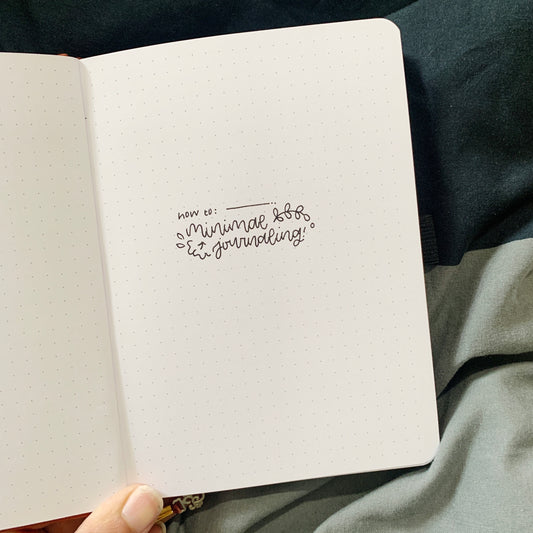 how to:
minimal
journaling!